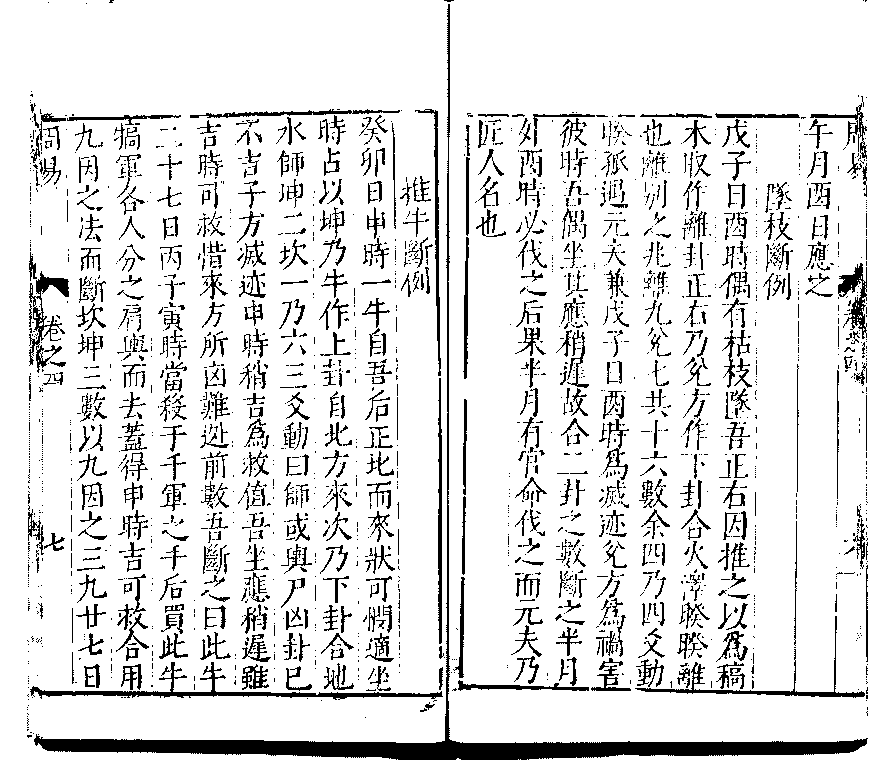 周易
卷之四
午月酉日應之
墜枝斷例
戊子日酉時偶有枯枝墜吾正右因推之以爲稿
木取作離卦正右乃兌方作下卦合火澤睽睽離
也離别之兆離九兌七共十六數余四乃四爻動
睽孤遇元夫兼戊子日酉時爲滅迹兌方爲禍害
彼時吾偶坐其應稍遲故合二卦之數斷之半月
外酉時必伐之后果半月有官命伐之而元夫乃
匠人名也
推牛斷例
癸卯日申時一牛自吾后正北而來狀可憫適坐
時占以坤乃牛作上卦自北方來次乃下卦合地
水師坤二坎一乃六三爻動曰師或輿尸凶卦已
不吉子方滅迹申時稍吉爲救值吾坐應稍遲雖
吉時可救惜來方所凶難逃前數吾斷之曰此牛
二十七日丙子寅時當殺于千軍之手后買此牛
犒軍各人分之肩輿而去蓋得申時吉可救合用
九因之法而斷坎坤三數以九因之三九廿七日
周易
卷之四
七